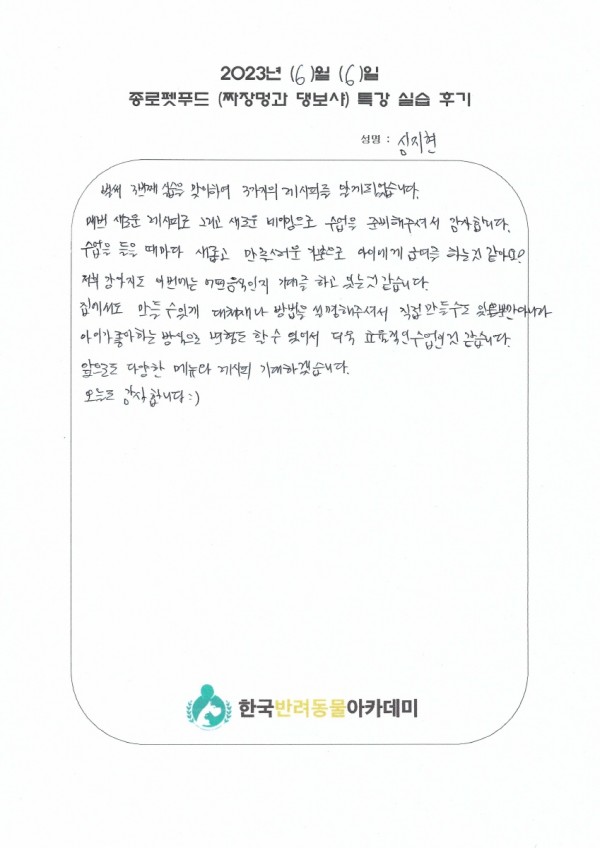 2023년 (6)월 (6)일
종로펫푸드 (짜장멍과 댕보샤) 특강 실습 후기
성명 : 심지현
벌써 3번째 실습을 맞이하여 3가지의 레시피를 알게되었습니다.
매번 새로운 레시피로 그리고 새로운 비법으로 수업을 준비해주셔서 감사합니다.
수업을 들을 때마다 새롭고 만족스러운 아이에게 급여를 하는것 같아요?
저희 강아지도 이번에는 어떤음식인지 기대를 하고 있는것 같습니다.
집에서도 만들 수있게 대체재나 방법을 설명해주셔서 직접 만들수도 있을뿐만아니라
아이가좋아하는 방식으로 변형도 할 수 있어서 더욱 효율적인수업인것 같습니다.
앞으로도 다양한 메뉴와 레시피 기대하겠습니다.
오늘도 감사합니다 :)
한국반려동물아카데미